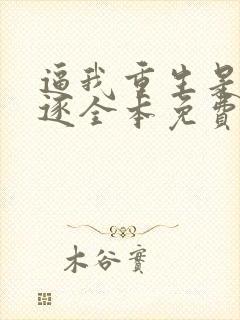 逼我重生是
逐全本免費
木谷實